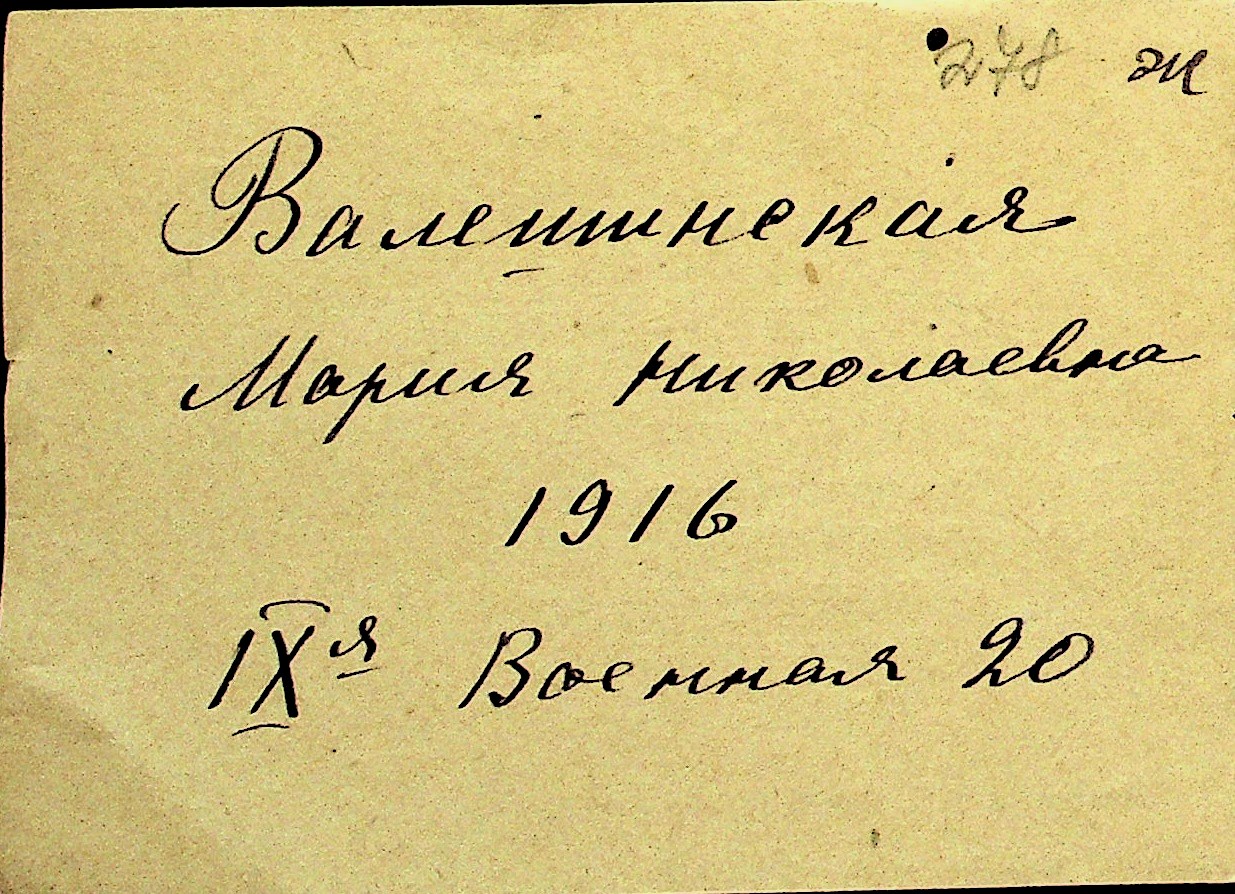 278 ж
Валентинская
Мария Николаевна
1916
IXя Военная 20